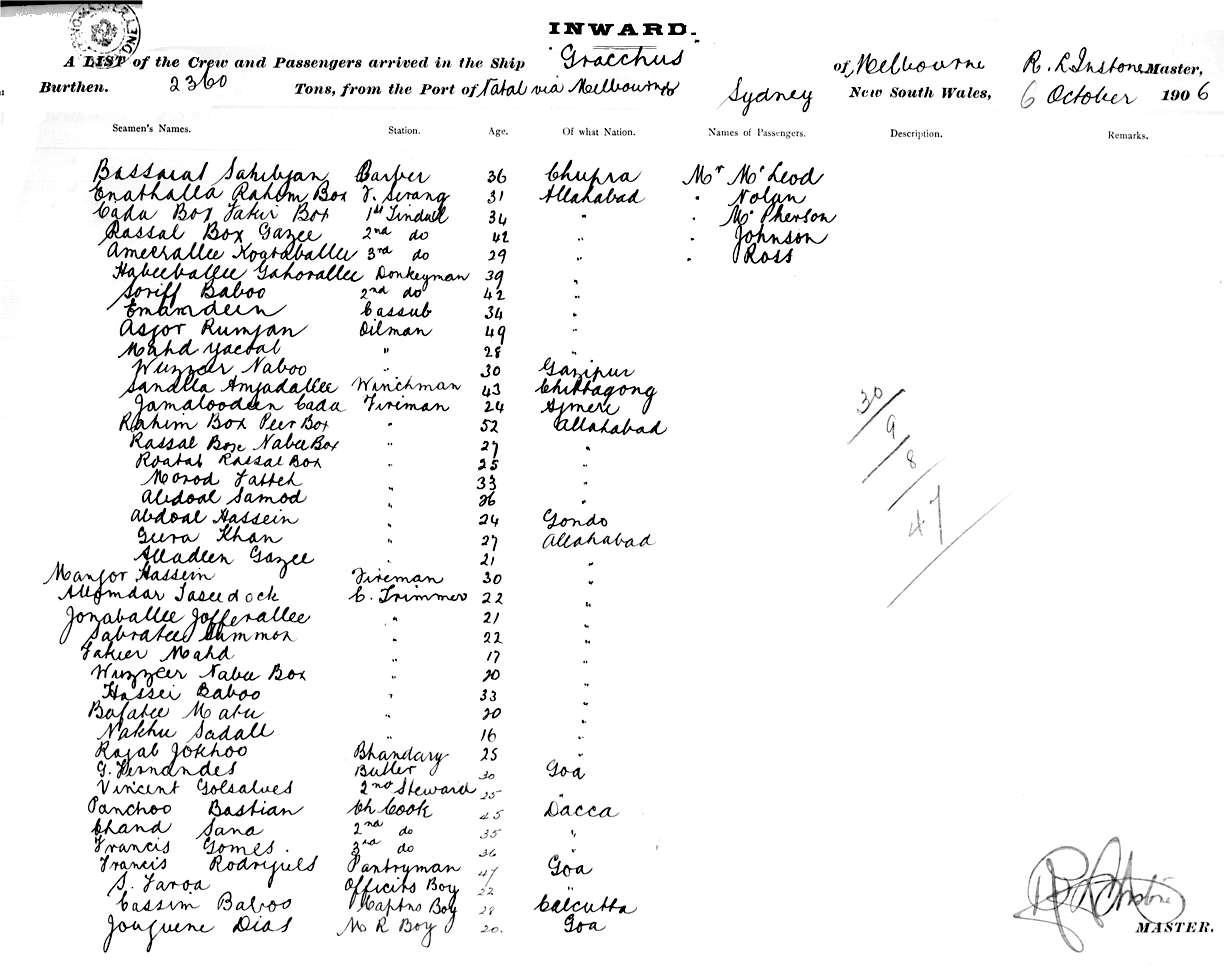 INWARD.
A LIST of the Crew and Passengers arrived in the Ship Gracchus of Melbourne R. L Instone Master,
Burthen. 2360 Tons, from the Port of Natal via Melbourne Sydney New South Wales, 6 October 1906
Seamen's Names. Station. Age. Of what Nation. Names of Passengers. Description. Remarks.
Bassarat Sahibjan Barber 36 Chupra Mr McLeod
Enathalla Rahim Box F. Serang 31 Allahabad " Nolan
Cadu Box Fakir Box 1st Tindall 34 " " McPherson
Rassal Box Gazee 2nd do 42 " " Johnson
Ameerallee 3rd do 29 " " Ross
Habeeballee Gahorallee Donkeyman 39 "
Soriff Baboo 2nd do 42 "
Emamdeen Cassub 34 "
Asgor Rumjan Oilman 49 "
Mahd Yacoal " 28 "
Wuzzeer Naboo " 30 Gazipur
Sanalla Amjadallee Winchman 43 Chittagong
Jamaloodeen Cada Fireman 24 Ajmere
Rahim Box Peer Box " 52 Allahabad
Rassal Box Nabee Box " 27 "
Rassal Box " 25 "
Morod Fatteh " 33 "
Abdoal Samod " 26 "
Abdoal Hassein " 24 Gondo
Gura Khan " 27 Allahabad
Alladeen Gazee " 21 "
Manjor Hassein Fireman 30 "
Allomdar C. Trimmer 22 "
Jonaballee Jofferallee " 21 "
Sabratee Summon " 22 "
Fakier Mahd " 17 "
Wuzzeer Nabu Box " 20 "
Hassei Baboo " 33 "
Bafatee Matu " 20 "
Nakhu Sadall " 16 "
Rajab Jokhoo Bhandary 25 "
G. Fernandes Butler 30 Goa
Vincent Golsalves 2nd Steward 25 "
Panchoo Bastian Ch Cook 45 Dacca
Chand Sana 2nd do 35 "
Francis Gomes. 3rd do 36 "
Francis Rodrigues Pantryman 47 Goa
S. Faroa Officers Boy 22 "
Cassim Baboo Captns Boy 28 Calcutta
Dias M R Boy 20. Goa
30
9
8
47
R L Instone
MASTER.